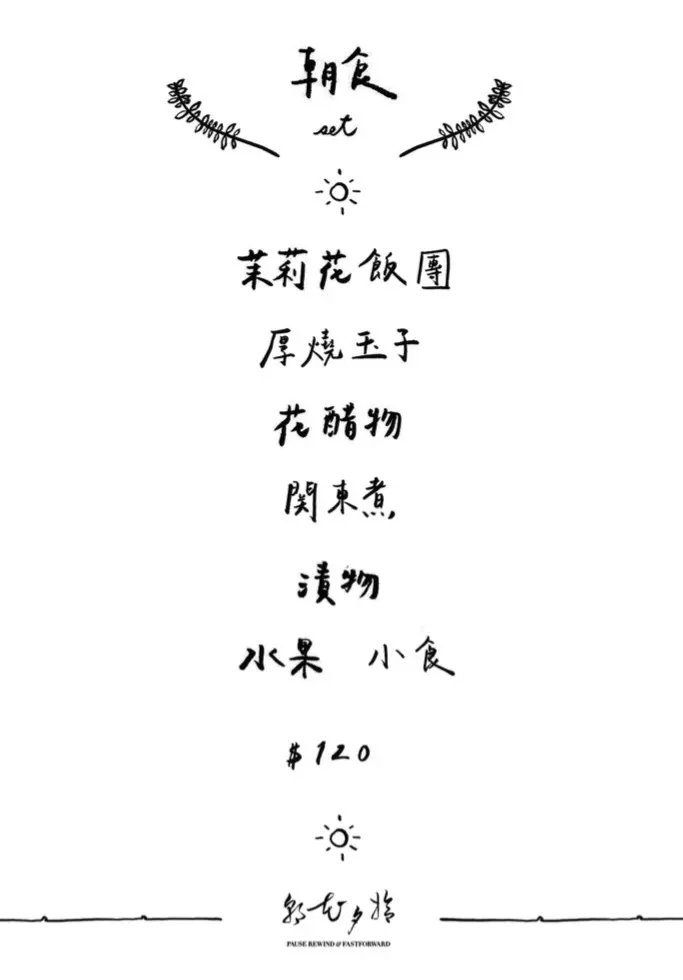 朝食
set
茉莉花飯團
厚燒玉子
花醋物
関東煮
漬物
水果 小食
$120
朝花夕拾
PAUSE REWIND & FASTFORWARD